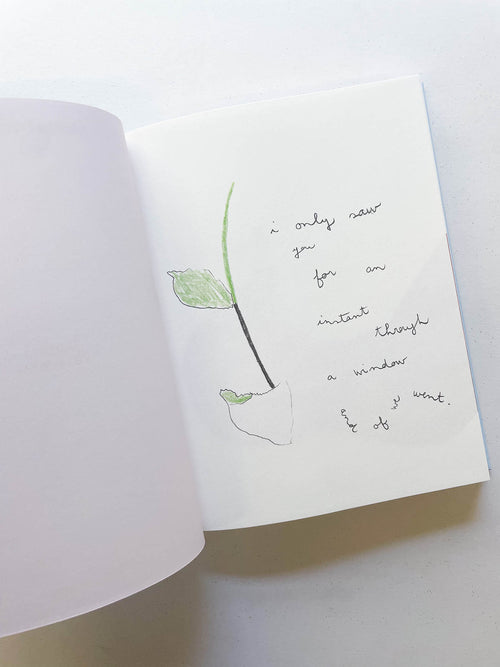 i only saw
you
for an
instant
through
a window
of went.